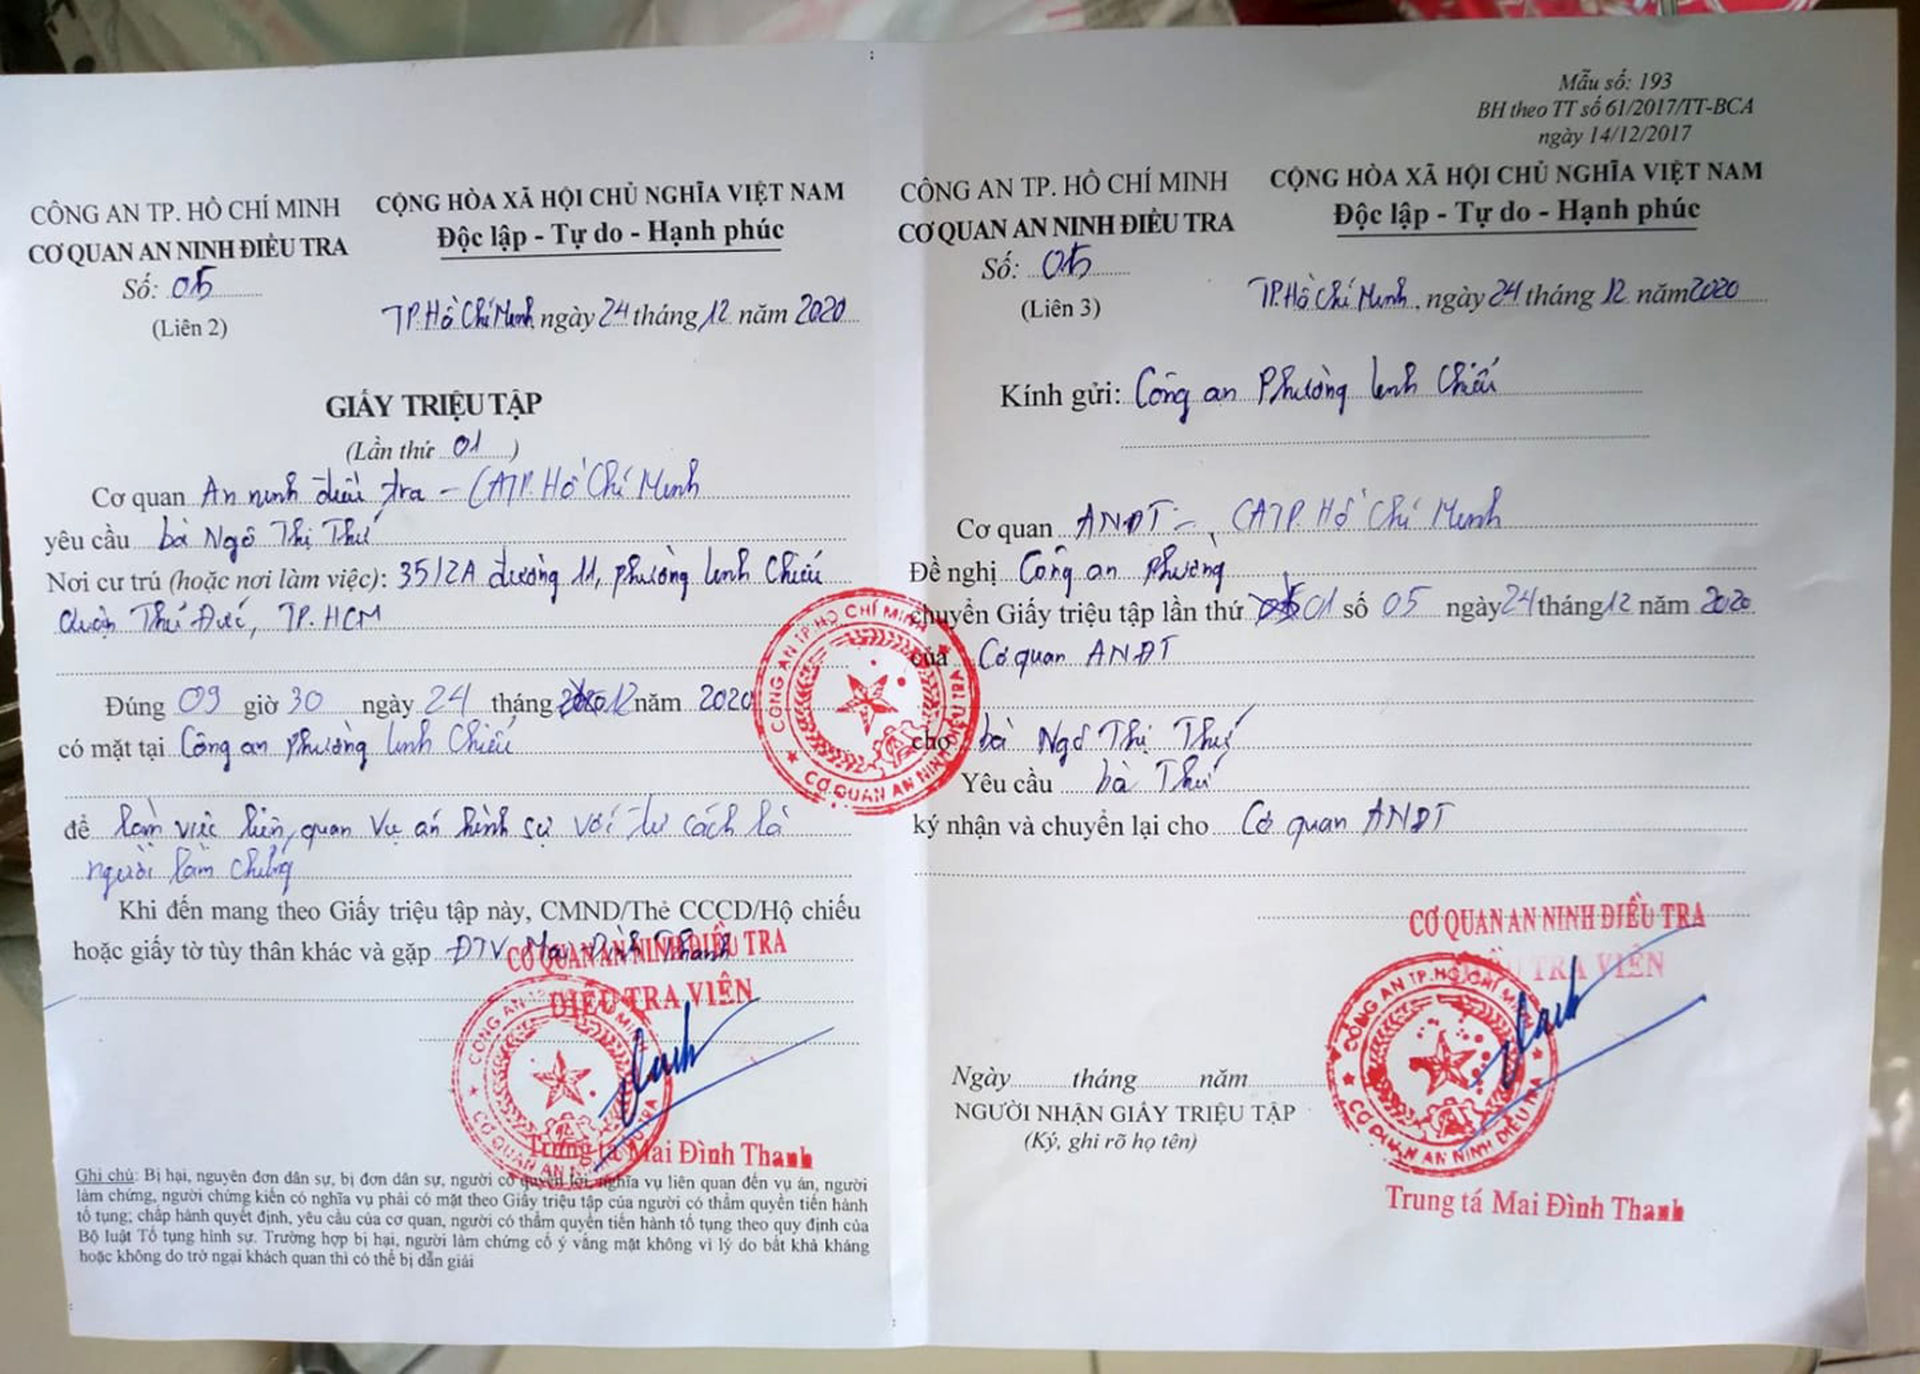 CÔNG AN TP. HỒ CHÍ MINH
CƠ QUAN AN NINH ĐIỀU TRA
Số: 05
(Liên 2)
CỘNG HÒA XÃ HỘI CHỦ NGHĨA VIỆT NAM
Độc lập - Tự do - Hạnh phúc
TP. Hồ Chí Minh, ngày 24 tháng 12 năm 2020
GIẤY TRIỆU TẬP
(Lần thứ 01)
Cơ quan An ninh điều tra - CATP. Hồ Chí Minh
yêu cầu bà Ngô Thị Thứ
Nơi cư trú (hoặc nơi làm việc): 35/2A đường 11, phường Linh Chiểu
Quận Thủ Đức, TP. HCM
Đúng 09 giờ 30 ngày 24 tháng 12 năm 2020
có mặt tại Công an phường Linh Chiểu
để làm việc liên quan vụ án hình sự với tư cách là
người làm chứng
Khi đến mang theo Giấy triệu tập này, CMND/Thẻ CCCD/Hộ chiếu
hoặc giấy tờ tùy thân khác và gặp ĐTV Mai Đình Thanh
CƠ QUAN AN NINH ĐIỀU TRA
ĐIỀU TRA VIÊN
CÔNG AN TP HỒ CHÍ MINH
CƠ QUAN AN NINH ĐIỀU TRA
Trung tá Mai Đình Thanh
Ghi chú: Bị hại, nguyên đơn dân sự, bị đơn dân sự, người có quyền lợi, nghĩa vụ liên quan đến vụ án, người
làm chứng, người chứng kiến có nghĩa vụ phải có mặt theo Giấy triệu tập của người có thẩm quyền tiến hành
tố tụng; chấp hành quyết định, yêu cầu của cơ quan, người có thẩm quyền tiến hành tố tụng theo quy định của
Bộ luật Tố tụng hình sự. Trường hợp bị hại, người làm chứng cố ý vắng mặt không vì lý do bất khả kháng
hoặc không do trở ngại khách quan thì có thể bị dẫn giải
CÔNG AN TP HỒ CHÍ MINH
CƠ QUAN AN NINH ĐIỀU TRA
Mẫu số: 193
BH theo TT số 61/2017/TT-BCA
ngày 14/12/2017
CÔNG AN TP. HỒ CHÍ MINH
CƠ QUAN AN NINH ĐIỀU TRA
Số: 05
(Liên 3)
CỘNG HÒA XÃ HỘI CHỦ NGHĨA VIỆT NAM
Độc lập - Tự do - Hạnh phúc
TP. Hồ Chí Minh, ngày 24 tháng 12 năm 2020
Kính gửi: Công an Phường Linh Chiểu
Cơ quan ANĐT - CATP. Hồ Chí Minh
Đề nghị Công an phường
chuyển Giấy triệu tập lần thứ 01 số 05 ngày 24 tháng 12 năm 2020
của Cơ quan ANĐT
cho bà Ngô Thị Thứ
Yêu cầu bà Thứ
ký nhận và chuyển lại cho Cơ quan ANĐT
CƠ QUAN AN NINH ĐIỀU TRA
ĐIỀU TRA VIÊN
CÔNG AN TP. HỒ CHÍ MINH
CƠ QUAN AN NINH ĐIỀU TRA
Ngày tháng năm
NGƯỜI NHẬN GIẤY TRIỆU TẬP
(Ký, ghi rõ họ tên)
Trung tá Mai Đình Thanh